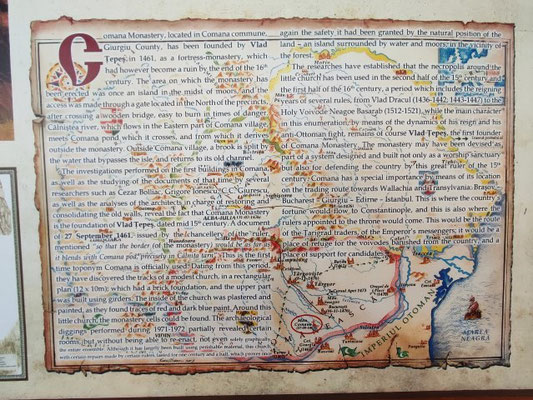 Comana Monastery, located in Comana commune,
Giurgiu County, has been founded by Vlad
Tepeș in 1461, as a fortress-monastery, which
had however become a ruin by the end of the 16th
century. The area on which the monastery has
been erected was once an island in the midst of moors and the
access was made through a gate located in the North of the precincts,
after crossing a wooden bridge, easy to burn in times of danger.
Câlniștea river, which flows in the Eastern part of Comana village
meets Comana pond, which it crosses, and from which it derives
outside the monastery. Outside Comana village, a brook is split by
the water that bypasses the isle, and returns to its old channel.
The investigations performed on the first buildings in Comana,
as well as the studying of the documents of that time by
researchers such as Cezar Bolliac, Grigore Ionescu, C.C. Giurescu,
as well as the analyses of the architects in charge of restoring and
consolidating the old walls, reveal the fact that Comana Monastery
is the foundation of Vlad Țepeș, dated mid 15th century. A document
of 27 September 1461, issued by the chancellery of the ruler,
mentioned "as the border (of the monastery) would be as far as
it blends with Comana pod," precisely in Călnău farm. This is the first
time toponym Comana is officially used. Dating from this period,
they have discovered the traces of a modest church, in a rectangular
plan (12 x 10m), which had a brick foundation, and the upper part
was built using girders. The inside of the church was plastered and
painted, as they found traces of red and dark blue paint. Around this
little church, the monks' cells could be found. The archaeological
diggings performed during 1971-1972 partially revealed certain
rooms, but without being able to re-enact, not even solely graphically,
the entire ensemble. Although it has largely been built using perishable material, this church,
with certain repairs made by various rulers, lasted for one century and a half, which proves once
again the safety it had been granted by the natural position of the
land – an island surrounded by water and moors, in the vicinity of
the forest.
The researches have established that the necropolis around the
little church has been used in the second half of the 15th century and
the first half of the 16th century, a period which includes the reigning
years of several rules, from Vlad Dracul (1436-1442; 1443-1447) to the
Holy Voivode Neagoe Basarab (1512-1521), while the main character
in this enumeration, by means of the dynamics of his reign and his
anti-Ottoman fight, remains of course Vlad Țepeș, the first founder
of Comana Monastery. The monastery may have been devised as
part of a system designed and built not only as a worship sanctuary
but also for defending the country by this great ruler of the 15th
century. Comana has a special importance by means of its location
on the trading route towards Wallachia and Transylvania: Brașov,
Bucharest, Giurgiu – Edirne – Istanbul. This is where the country's
fortune would flow, to Constantinople, and this is also where
rulers appointed to the throne would come. This would be the road
of the Tarigrad traders, of the Emperor's messengers, it would be a
place of refuge for the voivodes banished from the country, and a
place of support for candidates.
IMPERIUL OTOMAN
MAREA
NEAGRĂ